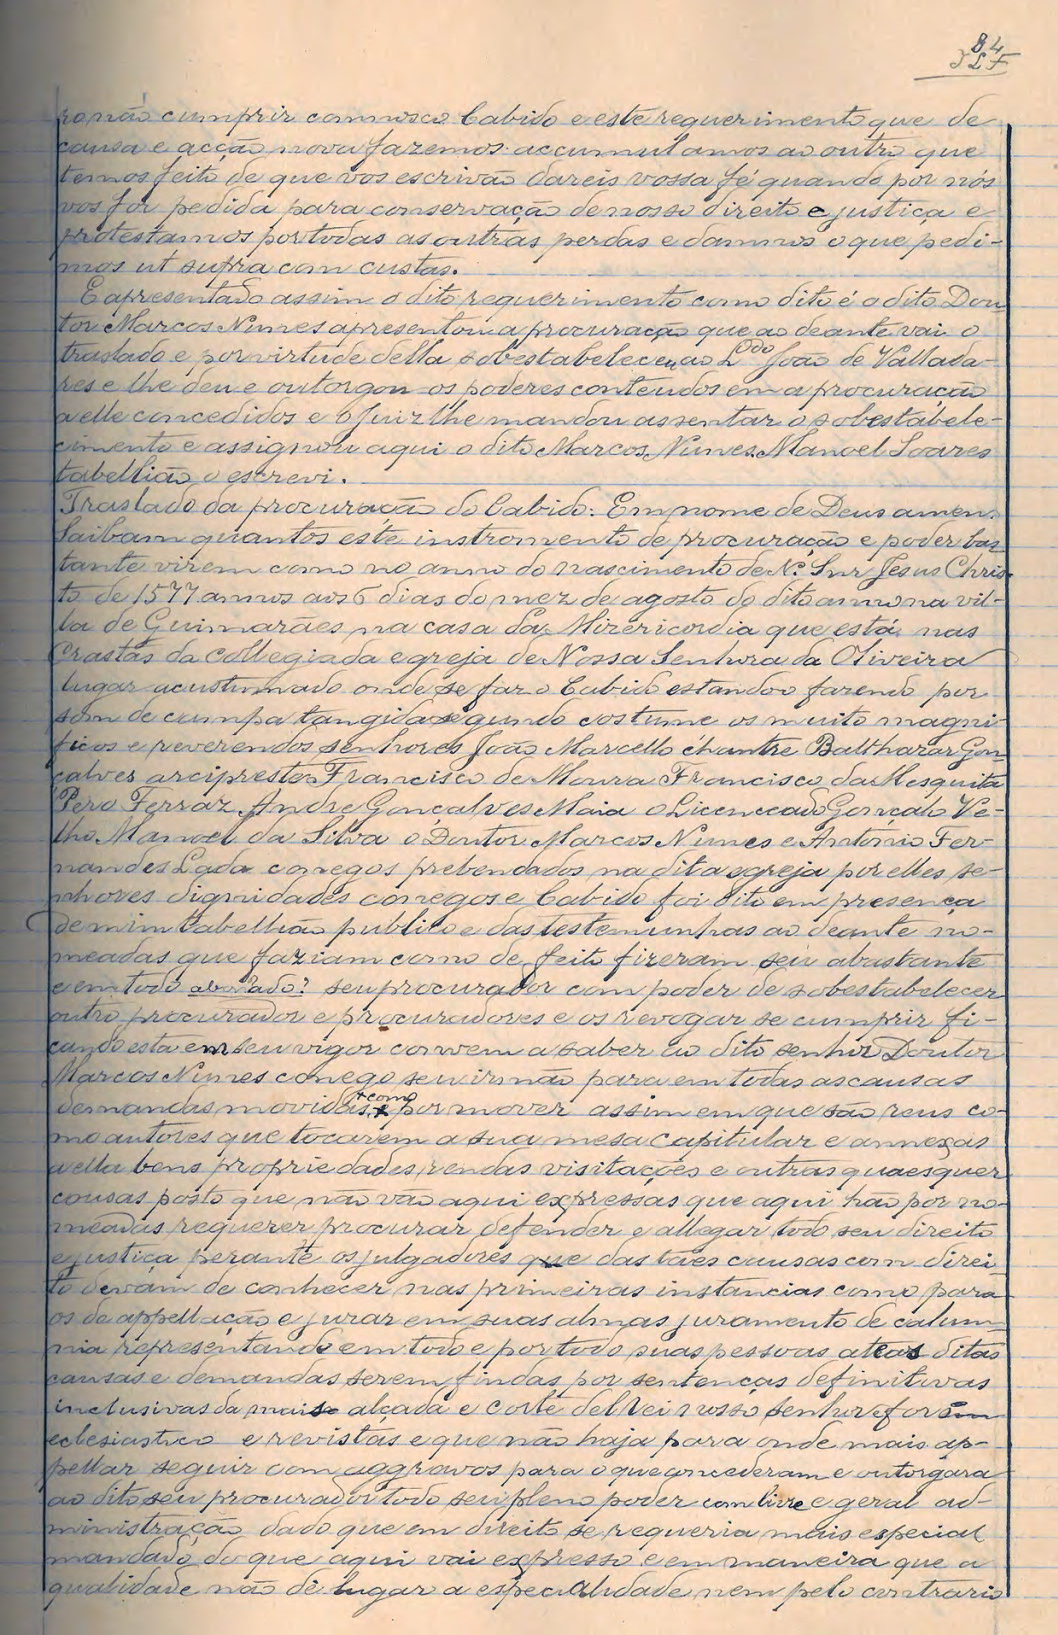 84
JLF
ro não cumprir comnosco Cabido e este requerimento que de
causa e acção nova fazemos accumulamos ao outro que
temos feito de que vos escrivão dareis vossa fé quando por nós
vos for pedida para conservação de nosso direito e justiça e
protestamos por todas as outras perdas e damnos o que pedi-
mos ut supra com custas.
E apresentado assim o dito requerimento como dito é o dito Dou-
tor Marcos Nunes apresentou a procuração que ao deante vai o
traslado e por virtude della sobestabeleceu ao Ldo João de Vallada-
res e lhe deu e outorgou os poderes conteudos em a procuração
a elle concedidos e o Juiz lhe mandou assentar o sobestabele-
cimento e assignou aqui o dito Marcos Nunes. Manoel Soares
tabellião o escrevi.
Traslado da procuração do Cabido: Em nome de Deus amen.
Saibam quantos este instromento de procuração e poder bas-
tante virem como no anno do nascimento de N. Snr Jesus Chris-
to de 1577 annos aos 6 dias do mez de agosto do dito anno na vil-
la de Guimarães na casa da Mizericordia que está nas
Crastas da Collegiada egreja de Nossa Senhora da Oliveira
lugar acustumado onde se faz o Cabido estando o fazendo por
som de campa tangida segundo costume os muito magni-
ficos e reverendos senhores João Marcello chantre Balthazar Gon-
çalves arcipreste Francisco de Moura Francisco da Mesquita
Pero Ferraz, Andre Gonçalves Maia o Licenceado Gonçalo Ve-
lho Manoel da Silva o Doutor Marcos Nunes e Antonio Fer-
nandes Lada conegos prebendados na dita egreja por elles se-
nhores dignidades conegos e Cabido foi dito em presença
de mim tabellião publico e das testemunhas ao deante no-
meadas que faziam como de feito fizeram seu abastante
e em todo abonado? seu procurador com poder de sobestabelecer
outro procurador e procuradores e os revogar se cumprir fi-
cando esta em seu vigor convem a saber ao dito senhor Doutor
Marcos Nunes conego seu irmão para em todas as causas
demandas movidas, + como por mover assim em que são reus co-
mo autores que tocarem a sua mesa capitular e annexas
a ella bens propriedades, rendas visitações e outras quaesquer
cousas posto que não vão aqui expressas que aqui hão por no-
meadas requerer procurar defender e allegar todo seu direito
e justiça perante os julgadores que das taes causas com direi-
to devam de conhecer nas primeiras instancias como para
os de appellação e jurar em suas almas juramento de calum-
nia representando em todo e por todo suas pessoas até as ditas
causas e demandas serem findas por sentenças definitivas
inclusivas da mais alçada e corte del Rei nosso senhor e foro
eclesiastico e revistas e que não haja para onde mais ap-
pellar seguir com aggravos para o que concederam e outorgara
ao dito seu procurador todo seu pleno poder com livre e geral ad-
ministração dado que em direito se requeria mais especial
mandado do que aqui vai expresso e em maneira que a
qualidade não dê lugar a especialidade nem pelo contrario